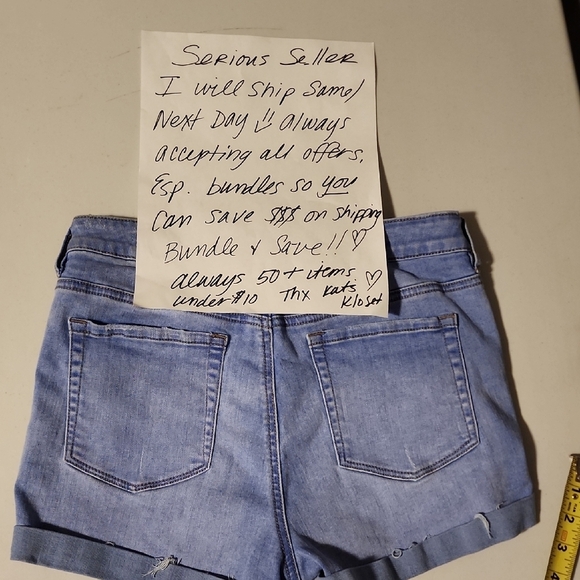 Serious Seller
I will ship same/
Next Day !! always
accepting all offers.
Esp. bundles so you
can save $$$ on shipping
Bundle + Save!! ♡
always 50+ items ♡
under $10 Thx Kats
Kloset
1 2 3
4